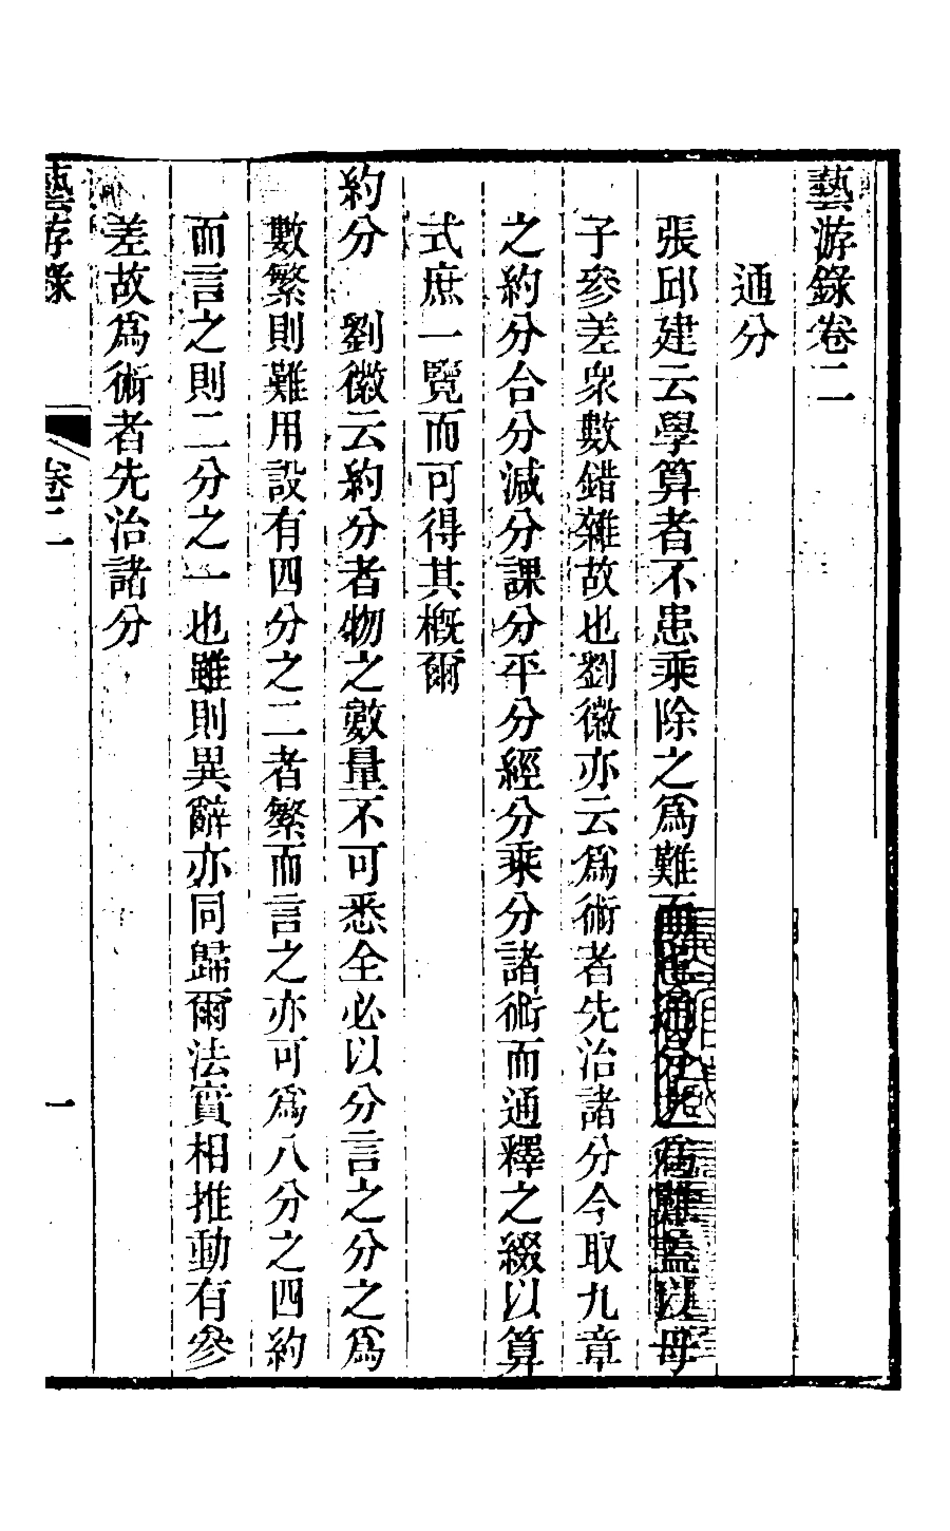 藝游錄卷二
通分
張邱建云學算者不患乘除之爲難而患通分之爲難蓋以母
子參差衆數錯雜故也劉徽亦云爲術者先治諸分今取九章
之約分合分減分課分平分經分乘分諸術而通釋之綴以算
式庶一覽而可得其槪爾
約分　劉徽云約分者物之數量不可悉全必以分言之分之爲
數繁則難用設有四分之二者繁而言之亦可爲八分之四約
而言之則二分之一也雖則異辭亦同歸爾法實相推動有參
差故爲術者先治諸分
藝游錄　卷二　一